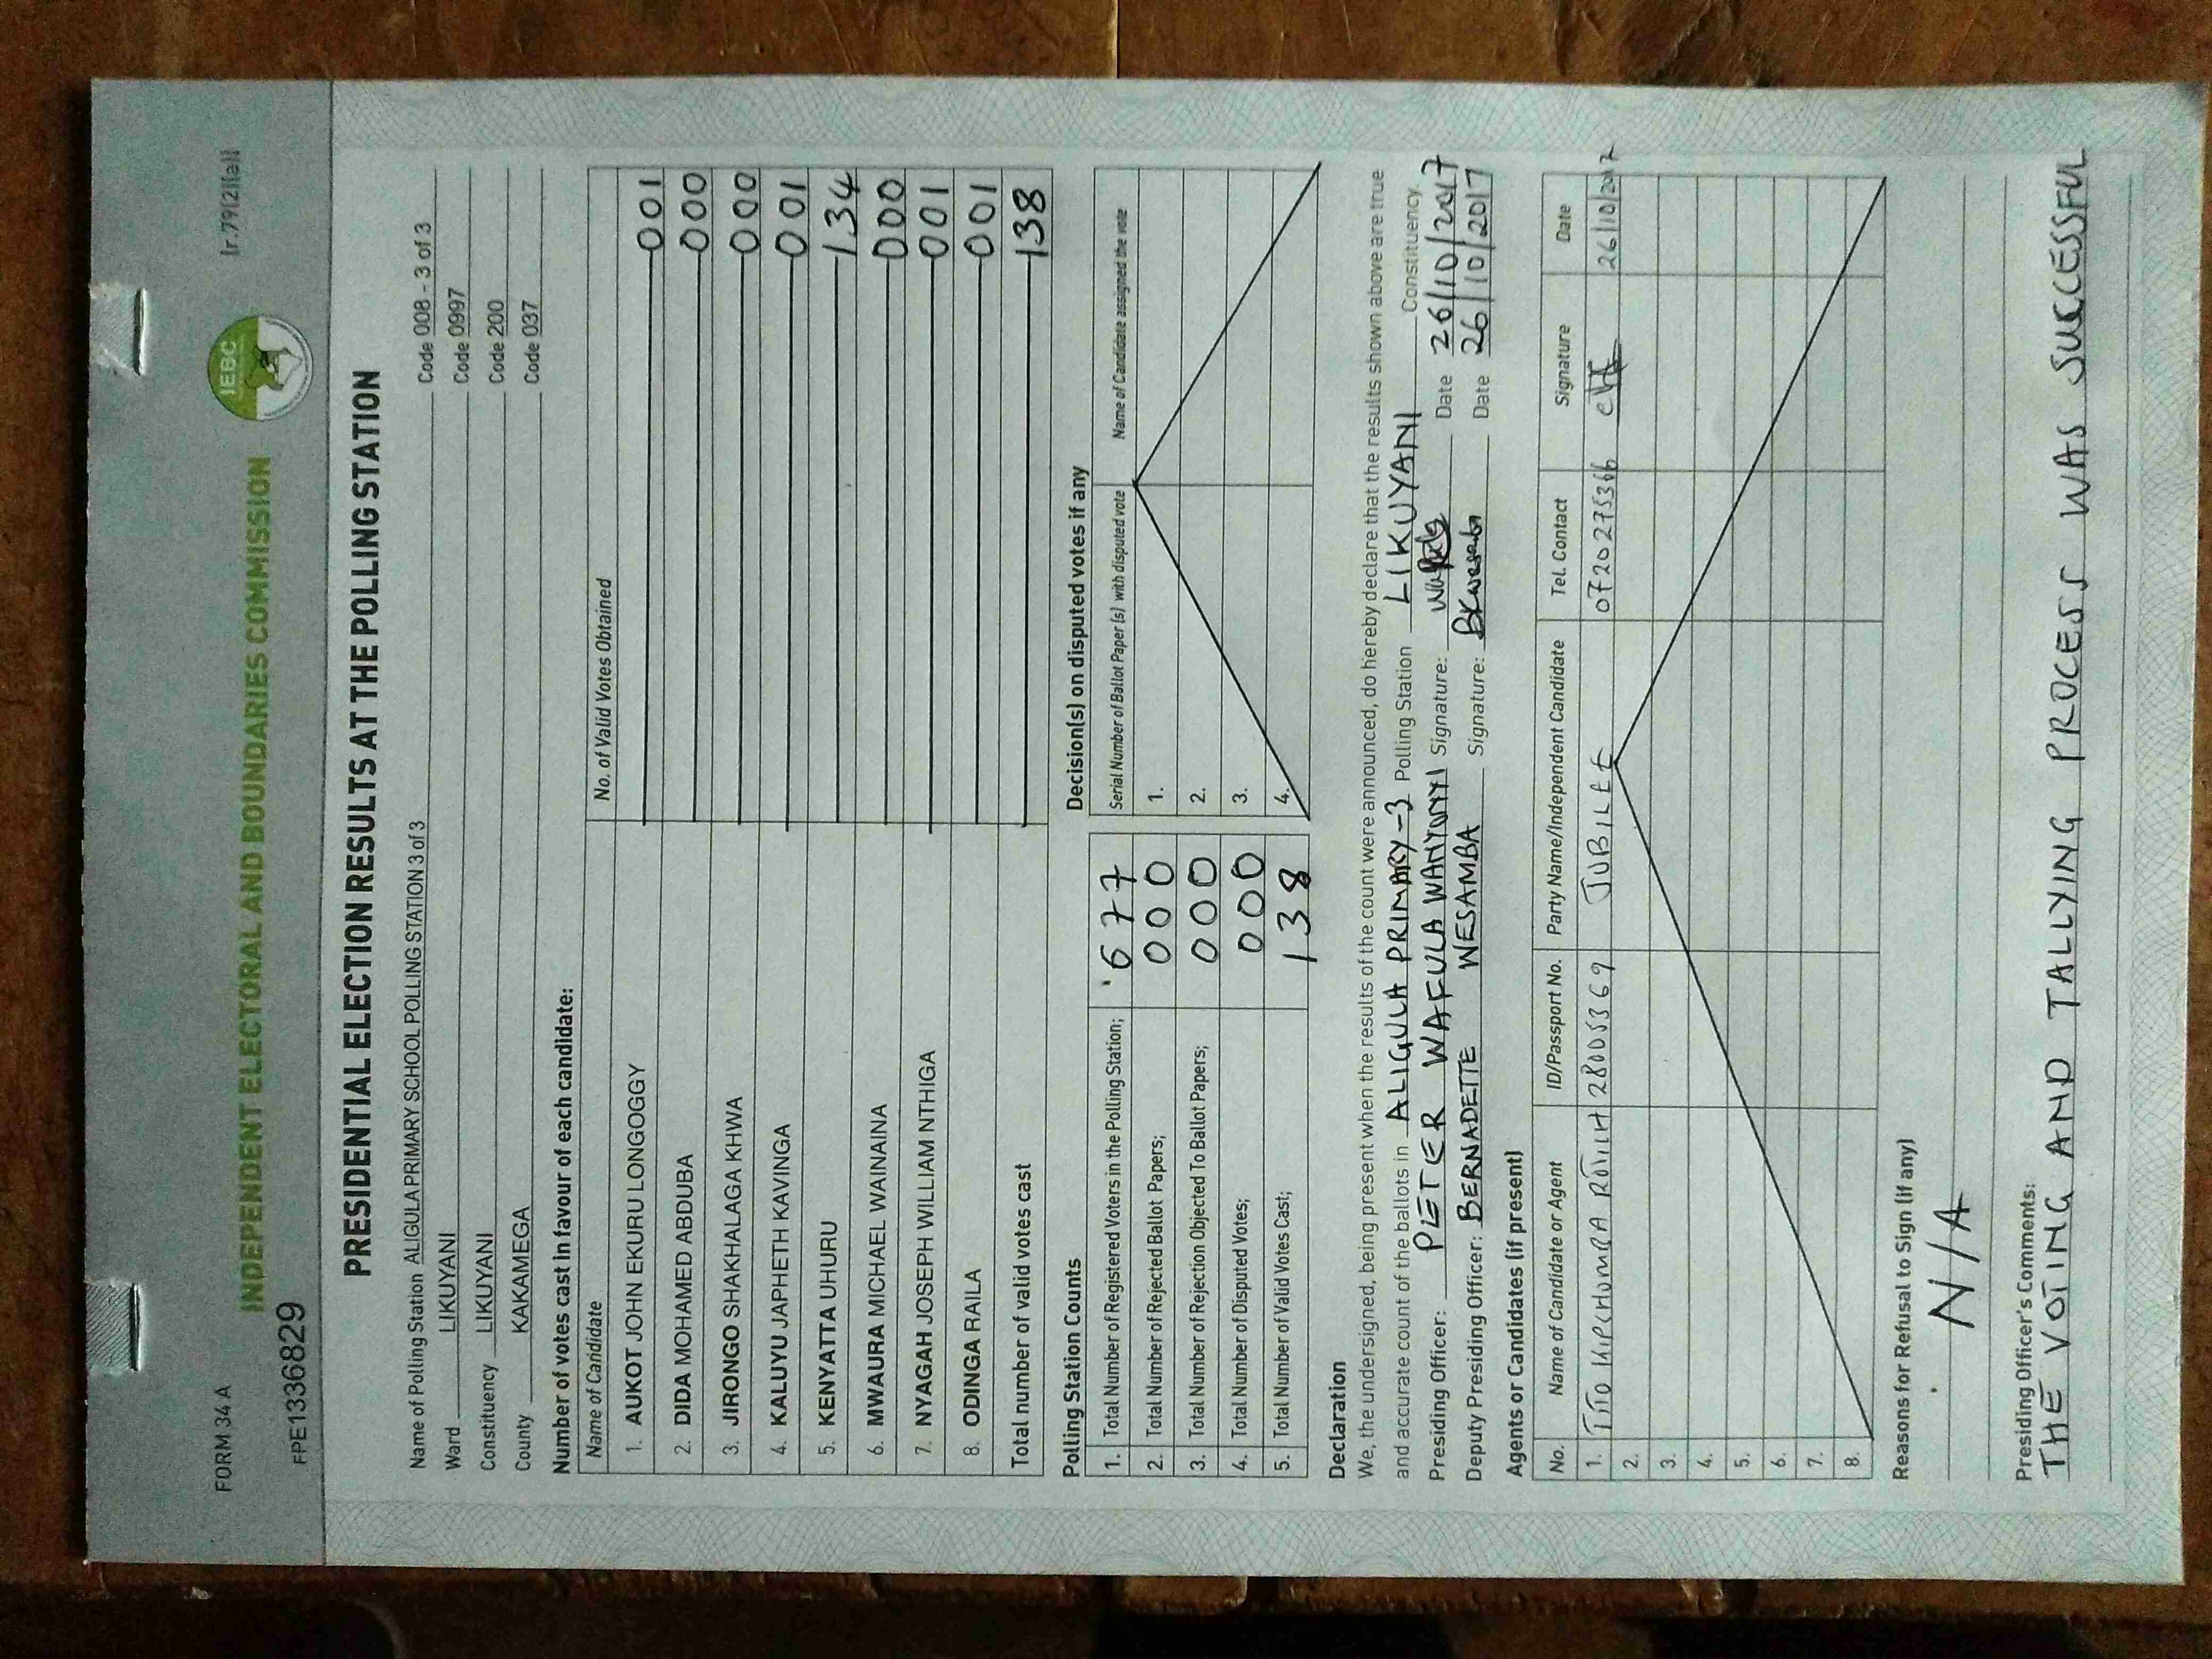 FORM 34 A
[r.79(2)(a)]
IEBC
INDEPENDENT ELECTORAL AND BOUNDARIES COMMISSION
FPE1336829
PRESIDENTIAL ELECTION RESULTS AT THE POLLING STATION
Name of Polling Station ALIGULA PRIMARY SCHOOL POLLING STATION 3 of 3 Code 008 - 3 of 3
Ward LIKUYANI Code 0997
Constituency LIKUYANI Code 200
County KAKAMEGA Code 037
Number of votes cast in favour of each candidate:
Name of Candidate No. of Valid Votes Obtained
1. AUKOT JOHN EKURU LONGOGGY 001
2. DIDA MOHAMED ABDUBA 000
3. JIRONGO SHAKHALAGA KHWA 000
4. KALUYU JAPHETH KAVINGA 001
5. KENYATTA UHURU 134
6. MWAURA MICHAEL WAINAINA 000
7. NYAGAH JOSEPH WILLIAM NTHIGA 001
8. ODINGA RAILA 001
Total number of valid votes cast 138
Polling Station Counts
1. Total Number of Registered Voters in the Polling Station; 677
2. Total Number of Rejected Ballot Papers; 000
3. Total Number of Rejection Objected To Ballot Papers; 000
4. Total Number of Disputed Votes; 000
5. Total Number of Valid Votes Cast; 138
Decision(s) on disputed votes if any
Serial Number of Ballot Paper (s) with disputed vote Name of Candidate assigned the vote
1.
2.
3.
4.
Declaration
We, the undersigned, being present when the results of the count were announced, do hereby declare that the results shown above are true
and accurate count of the ballots in ALIGULA PRIMARY-3 Polling Station LIKUYANI Constituency
Presiding Officer: PETER WAFULA WANYONYI Signature: Date 26/10/2017
Deputy Presiding Officer: BERNADETTE WESAMBA Signature: Date 26/10/2017
Agents or Candidates (if present)
No. Name of Candidate or Agent ID/Passport No. Party Name/Independent Candidate Tel. Contact Signature Date
1. TITO KIPCHUMBA ROTICH 28005369 JUBILEE 0720275366 26/10/2017
2.
3.
4.
5.
6.
7.
8.
Reasons for Refusal to Sign (if any)
N/A
Presiding Officer's Comments:
THE VOTING AND TALLYING PROCESS WAS SUCCESSFUL